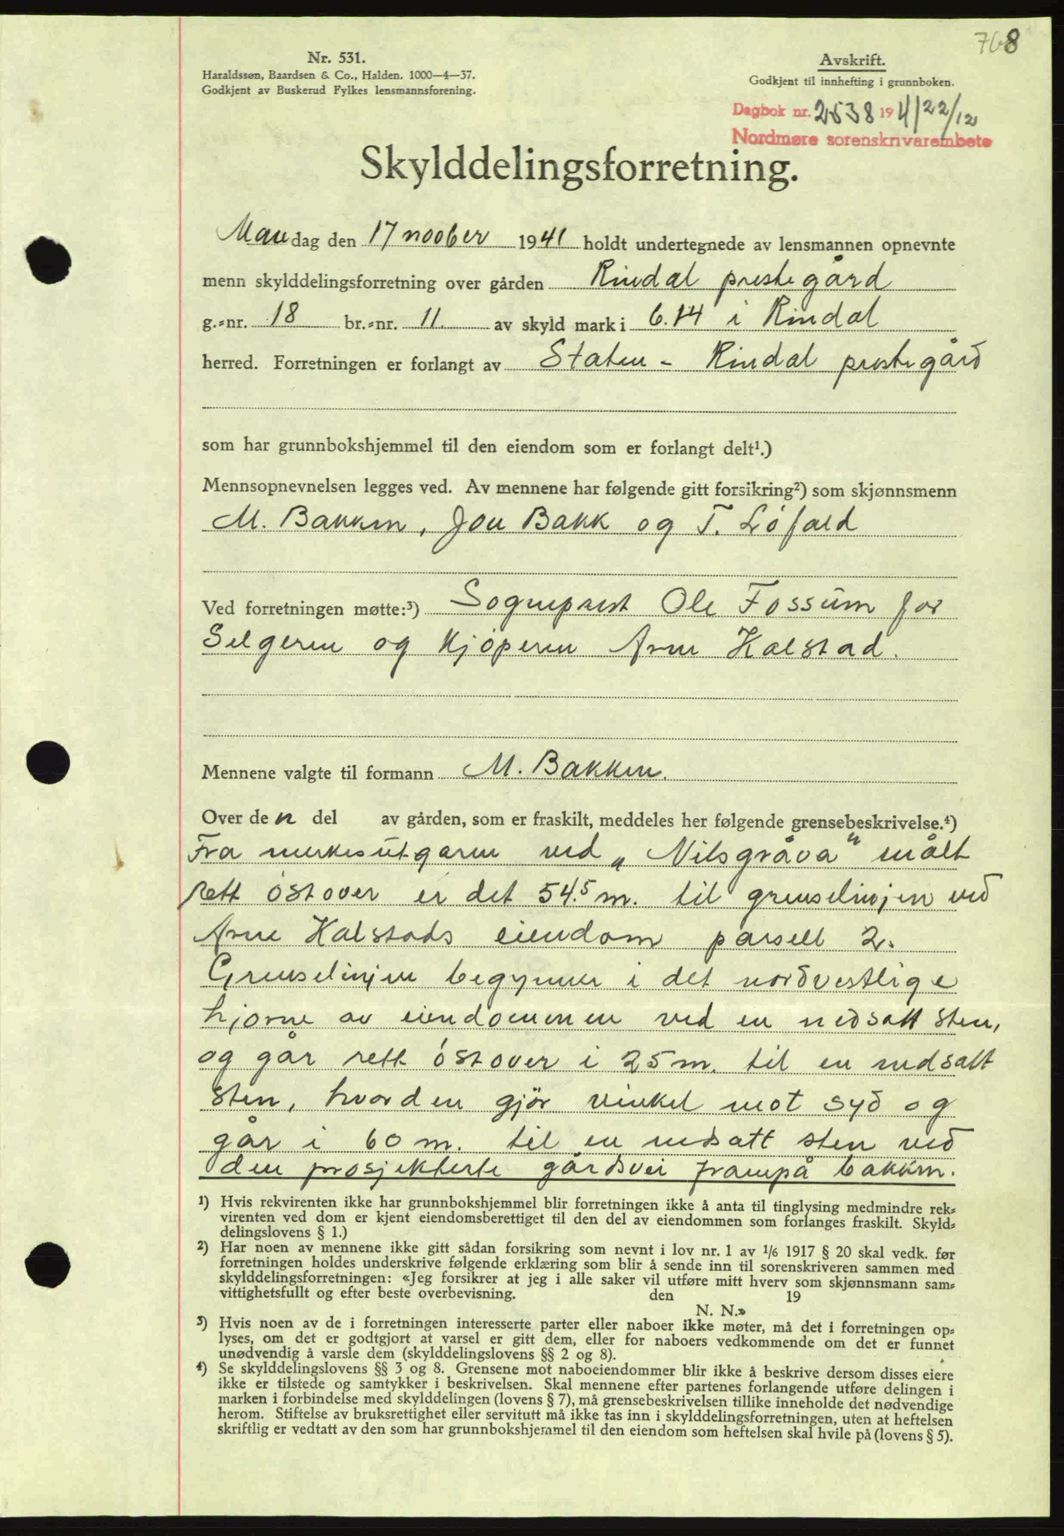 768
Nr. 531.
Haraldssøn, Baardsen & Co., Halden. 1000—4—37.
Godkjent av Buskerud Fylkes lensmannsforening.
Avskrift.
Godkjent til innhefting i grunnboken.
Dagbok nr. 2538 1941 22/12
Nordmøre sorenskrivarembete
Skylddelingsforretning.
Mandag den 17 november 1941 holdt undertegnede av lensmannen opnevnte
menn skylddelingsforretning over gården Rindal prestegård
g.=nr. 18 br.=nr. 11. av skyld mark i 6.14 i Rindal
herred. Forretningen er forlangt av Staten - Rindal prestegård
som har grunnbokshjemmel til den eiendom som er forlangt delt¹.)
Mennsopnevnelsen legges ved. Av mennene har følgende gitt forsikring²) som skjønnsmenn
M. Bakken, Jon Bakk og T. Löfald
Ved forretningen møtte:³) Sogneprest Ole Fossum for
Selgeren og kjöperen Arne Halstad.
Mennene valgte til formann M. Bakken.
Over de n del av gården, som er fraskilt, meddeles her følgende grensebeskrivelse.⁴)
Fra merkesutgaren ved „Nilsgråva" målt
rett östover er det 54.5 m. til grenselinjen ved
Arne Halstads eiendom parsell 2.
Grenselinjen begynner i det nordvestlige
hjorne av eiendommen ved en nedsatt sten,
og går rett östover i 25 m. til en nedsatt
sten, hvor den gjör vinkel mot syd og
går i 60 m. til en nedsatt sten ved
den prosjekterte gårdsvei frampå bakken.
¹) Hvis rekvirenten ikke har grunnbokshjemmel blir forretningen ikke å anta til tinglysing medmindre rek=
virenten ved dom er kjent eiendomsberettiget til den del av eiendommen som forlanges fraskilt. Skyld=
delingslovens § 1.)
²) Har noen av mennene ikke gitt sådan forsikring som nevnt i lov nr. 1 av 1/6 1917 § 20 skal vedk. før
forretningen holdes underskrive følgende erklæring som blir å sende inn til sorenskriveren sammen med
skylddelingsforretningen: «Jeg forsikrer at jeg i alle saker vil utføre mitt hverv som skjønnsmann sam=
vittighetsfullt og efter beste overbevisning. den 19
N. N.»
³) Hvis noen av de i forretningen interesserte parter eller naboer ikke møter, må det i forretningen op=
lyses, om det er godtgjort at varsel er gitt dem, eller for naboers vedkommende om det er funnet
unødvendig å varsle dem (skylddelingslovens §§ 2 og 8).
⁴) Se skylddelingslovens §§ 3 og 8. Grensene mot naboeiendommer blir ikke å beskrive dersom disses eiere
ikke er tilstede og samtykker i beskrivelsen. Skal mennene efter partenes forlangende utføre delingen i
marken i forbindelse med skylddelingen (lovens § 7), må grensebeskrivelsen tillike inneholde det nødvendige
herom. Stiftelse av bruksrettighet eller servitutt må ikke tas inn i skylddelingsforretningen, uten at heftelsen
skriftlig er vedtatt av den som har grunnbokshjemmel til den eiendom som heftelsen skal hvile på (lovens § 5).